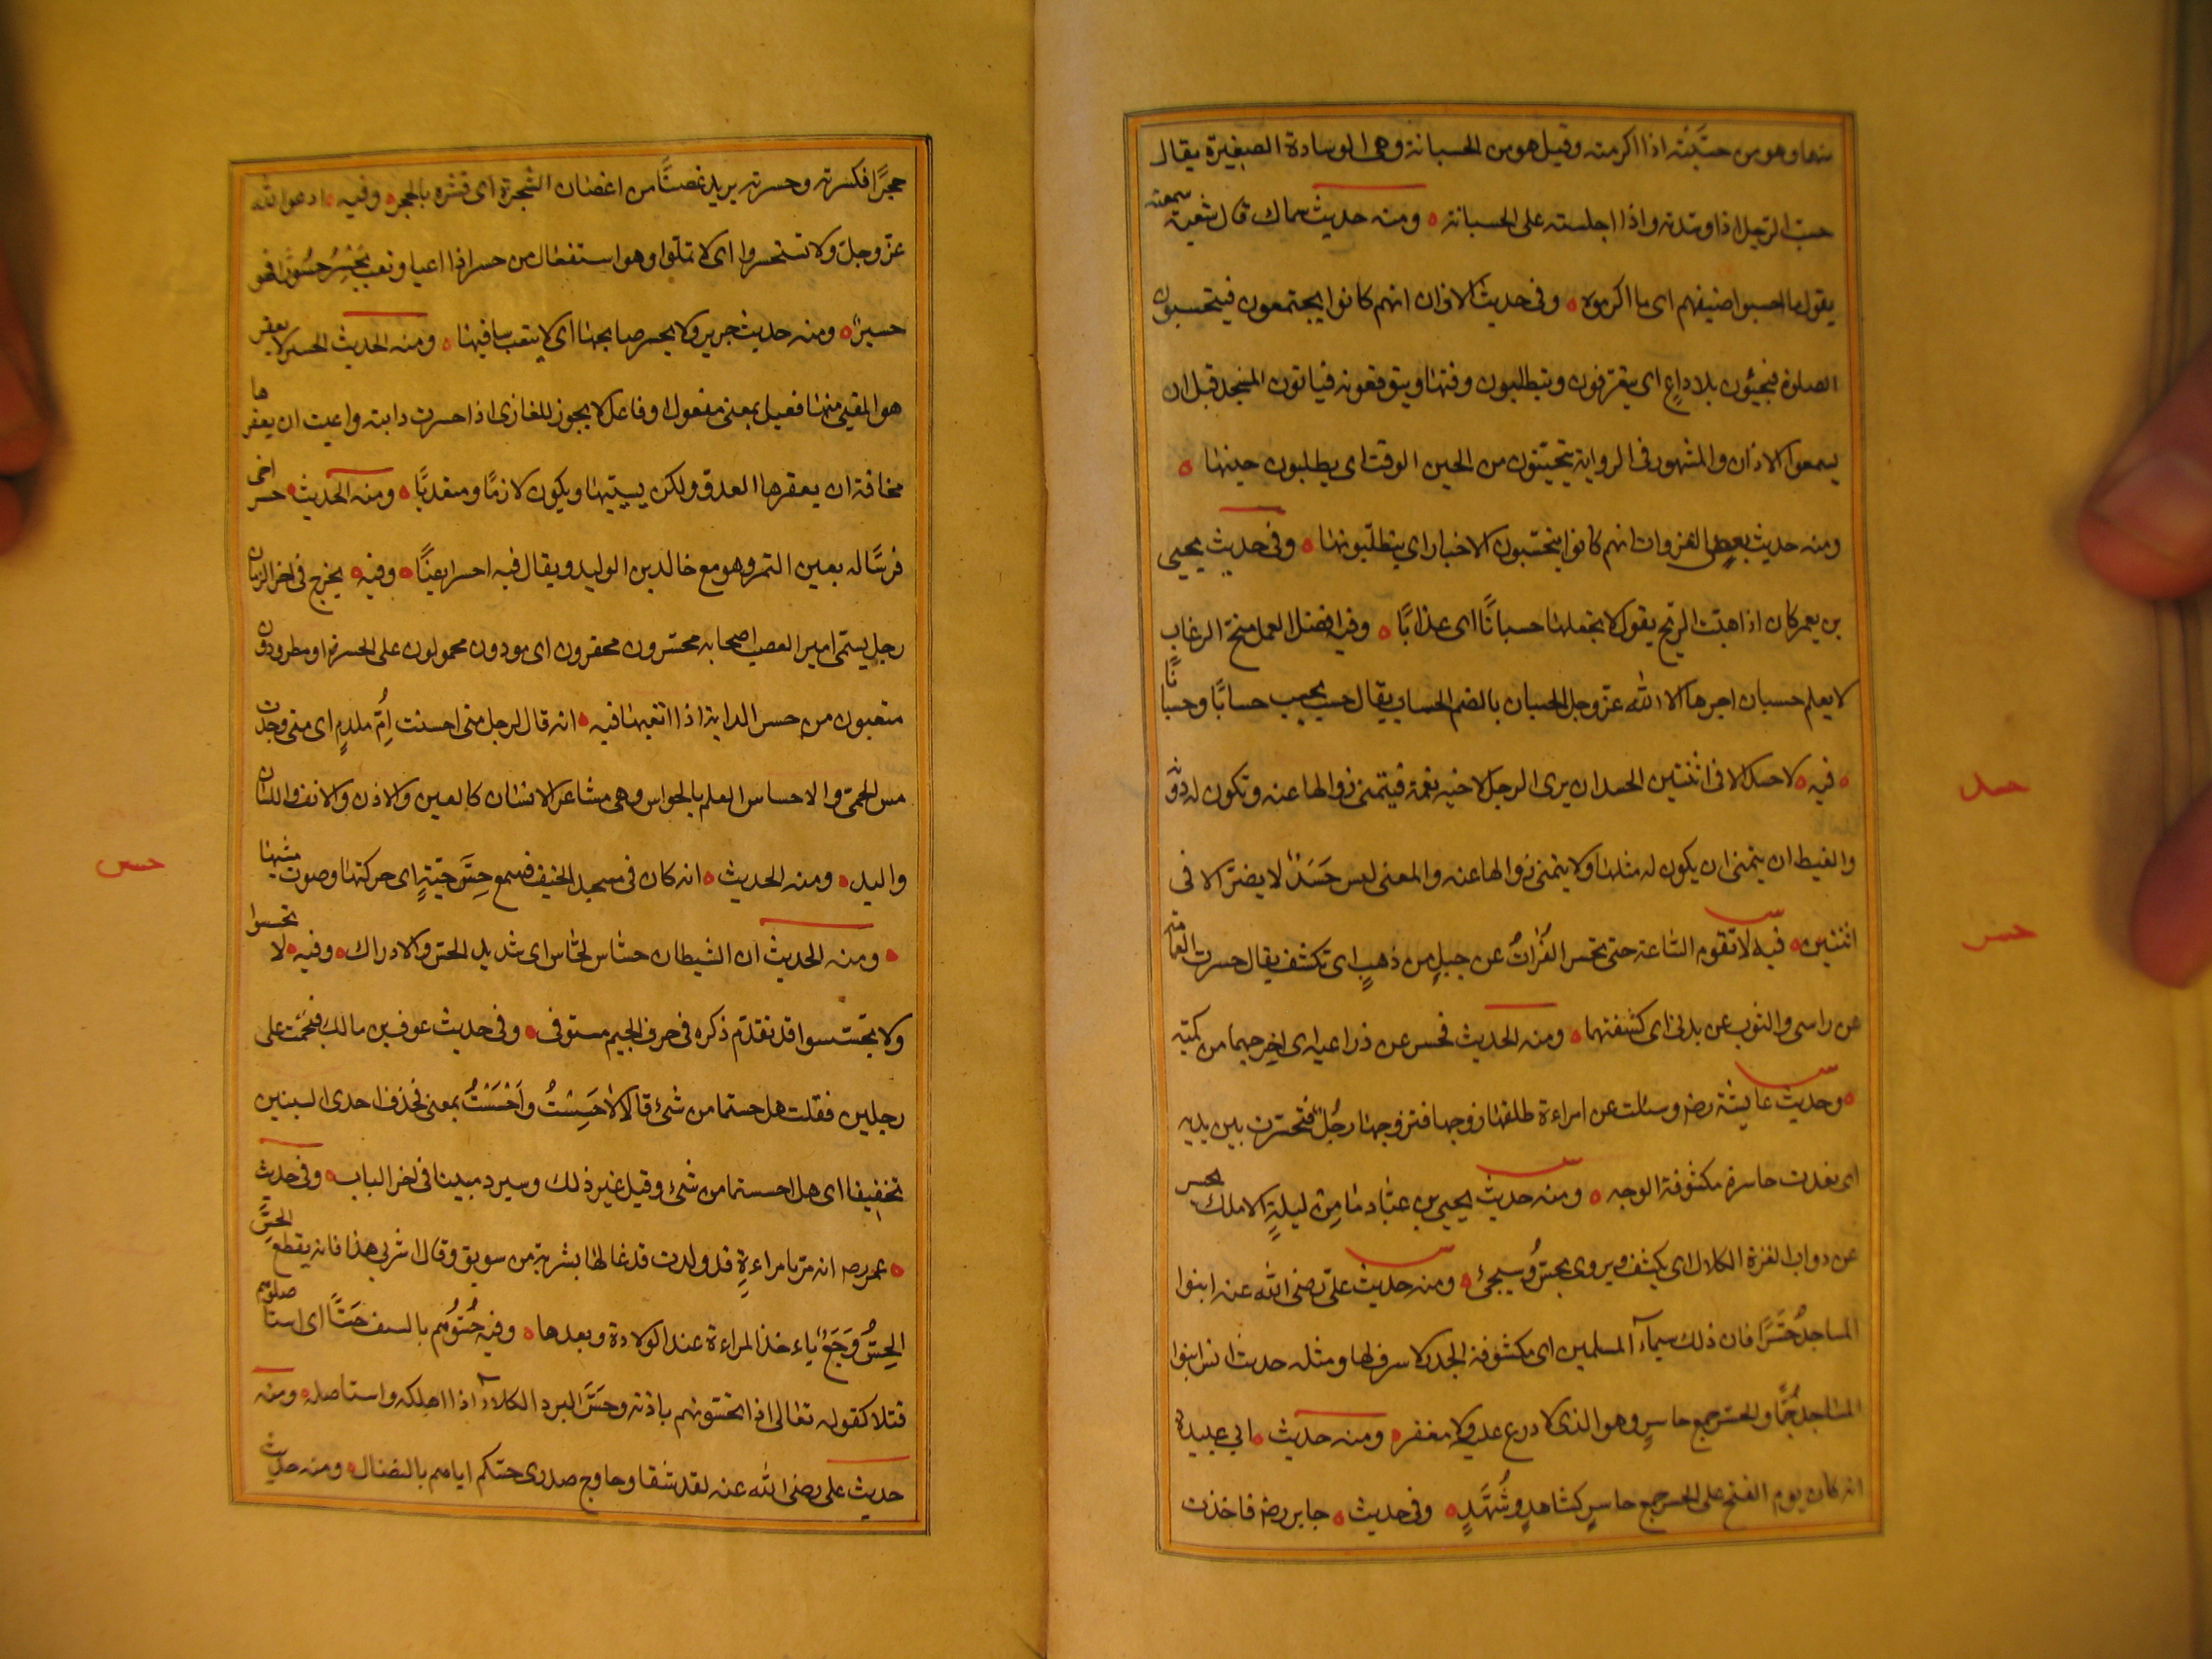 منها وهو من حسّبته اذا اكرمته وقيل هو من الحسبانة وهى الوسادة الصغيرة يقال
حسبت الرّجل اذا وسّدته واذا اجلسته على الحسبانة ومنه حديث سماك قال شعبة سمعته
يقول ما حسبوا ضيفهم اى ما اكرموه وفى حديث الاذان انهم كانوا يجتمعون فيتحسبون
الصلوة فيجيئون بلا داعٍ اى يتعرّفون ويتطلبون وقتها ويتوقعونه فياتون المسجد قبل ان
يسمعوا الاذان والمشهور فى الرواية يتحيّنون من الحين الوقت اى يطلبون حينها
ومنه حديث بعض الغزوات انهم كانوا يتحسّبون الاخبار اى يتطلّبونها وفى حديث يحيى
بن يعمر كان اذا هبّت الرّيح يقول لا تجعلها حسبانًا اى عذابًا وفيه افضل العمل منح الرغاب
لا يعلم حسبان اجرها الا الله عزّ وجل الحسبان بالضم الحساب يقال حسب يحسب حسابًا وحسبانًا
فيه لا حسد الا فى اثنتين الحسد ان يرى الرجل لاخيه نعمة فيتمنى زوالها عنه وتكون له دونه
والغبط ان يتمنى ان يكون له مثلها ولا يتمنى زوالها عنه والمعنى ليس حَسَدٌ لا يضرّ الا فى
اثنتين فيه لا تقوم السّاعة حتى يحسر الفُراتُ عن جبلٍ من ذهبٍ اى تكشف يقال حسرت العمامة
عن راسى والثوب عن بدنى اى كشفتهما ومنه الحديث فحسر عن ذراعيه اى اخرجهما من كميّه
وحديث عايشة رضه وسئلت عن امراءة طلقها زوجها فتزوجها رجُلٌ فتحسّرت بين يديه
اى قعدت حاسرة مكشوفة الوجه ومنه حديث يحيى بن عبّاد ما مِن ليلةٍ الا ملك يحسر
عن دواب الغزة الكلال اى يكشف ويروى يحسّ وسيجئ ومنه حديث علىّ رضى الله عنه ابنوا
المساجد حُسّرًا فان ذلك سيمآء المسلمين اى مكشوفة الجدر لا سرف لها ومثله حديث انس ابنوا
المساجد جُمًّا والحسر جمع حاسرٍ وهو الذى لا درع عليه ولا مغفر ومنه حديث ابى عبيدة
انه كان يوم الفتح على الحسر جمع حاسرٍ كشاهدٍ وشُهّدٍ وفى حديث جابر رضه فاخذت
حسد
حسر
حجرًا فكسرته وحسرته يريد غصنًا من اغصان الشجرة اى قشره بالحجر وفيه ادعوا الله
عزّ وجلّ ولا تستحسروا اى لا تملّوا وهو استفعال من حسر اذا اعيا وتعب يَحْسِرُ حُسُورًا فهو
حسيرٌ ومنه حديث جرير ولا يحسر صابحها اى لا يتعب سافيها ومنه الحديث الحسير لا يعقر
هو المعيى منها فعيل بمعنى مفعول او فاعل لا يجوز للغازى اذا حسرت دابته واعيت ان يعقرها
مخافة ان يعقرها العدوّ ولكن يسيّبها ويكون لازمًا ومتعديًا ومنه الحديث حسر اخى
فرسًا له بعين التمر وهو مع خالد بن الوليد ويقال فيه احسر ايضًا وفيه يخرج فى اخر الزمان
رجل يسمّى امير العصب اصحابه محسّرون محقرون اى موذون محمولون على الحسرة او مطرودون
متعبون من حسر الدابة اذا اتعبها فيه انه قال لرجل متى احسست اُمّ ملدمٍ اى متى وجدت
مس الحمّى والاحساس العلم بالحواس وهى مشاعر الانسان كالعين والاذن والانف واللسان
واليد ومنه الحديث انه كان فى مسجد الخيف فسمع حِسّ حيّةٍ اى حركتها وصوت مشيها
ومنه الحديث ان الشيطان حسّاس لحّاس اى شديد الحسّ والادراك وفيه لا تحسسوا
ولا تجسّسوا قد تقدّم ذكره فى حرف الجيم مستوفى وفى حديث عوف بن مالك فهجمت على
رجلين فقلت هل حستما من شئ قالا لا حَسِسْتُ واَحْسَسْتُ بمعنى فحذف احدى السينين
تخفيفا اى هل احسستما من شئ وقيل غير ذلك وسيرد مبينا فى اخر الباب وفى حديث
عمر رضه انه مرّ بامراءةٍ قد ولدت فدعا لها بشربة من سويق وقال اشربى هذا فانه يقطع الحِسَّ
الحِسّ وَجَعٌ ياءخذ المراءة عند الولادة وبعدها وفيه حُسّوهم بالسيف حَسًّا اى استاصلوهم
قتلا كقوله تعالى اذ تحسّونهم باذنه وحَسَّ البرد الكلاء اذا اهلكه واستاصله ومنه
حديث على رضى الله عنه لقد شفا وحاوح صدرى حسّكم اياهم بالنصال ومنه حديث
حسس